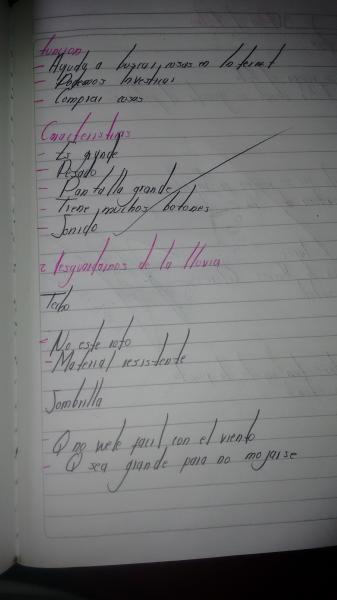 funcion
- Ayuda a buscar cosas en Internet
- Podemos Investicar
- Comprar cosas
Caracteristicas
- Es grande
- Pesado
- Pantalla grande
- Tiene muchos botones
- Sonido
2 Resguardarnos de la lluvia
Techo
- No este roto
- Material resistente
Sombrilla
- Q no vuele facil con el viento
- Q sea grande para no mojarse